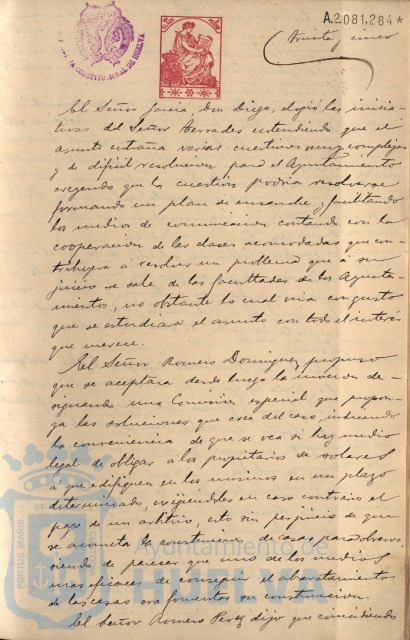 A.2081.284*
Treinta y cinco
ALCALDIA CONSTITUCIONAL DE HUELVA
El Señor García, Don Diego, elogió las inicia-
tivas del Señor Terrades entendiendo que el
asunto entraña varias cuestiones muy complejas
y de dificil resolucion para el Ayuntamiento
creyendo que la cuestion podria resolverse
formando un plan de ensanche y facilitando
los medios de comunicacion contando con la
cooperacion de las clases acomodadas que con-
tribuyera á resolver un problema que á su
juicio se sale de las facultades de los Ayunta-
mientos, no obstante lo cual veia con gusto
que se estudiara el asunto con todo el interés
que merece.
El Señor Romero Dominguez propuso
que se aceptara desde luego la mocion de-
signando una Comision especial que propon-
ga las soluciones que crea del caso, indicando
la conveniencia de que se vea si hay medio
legal de obligar a los propietarios de solares
á que edifiquen en los mismos en un plazo
determinado, exigiendoles en caso contrario el
pago de un arbitrio, esto sin perjuicio de que
se acometa la construccion de casas para obreros
siendo de parecer que uno de los medios
mas eficaces de conseguir el abaratamiento
de las casas era fomentar su construccion.
El Señor Romero Perez dijo que coincidiendo
PORTUS MARIS
Ayuntamiento de
HUELVA